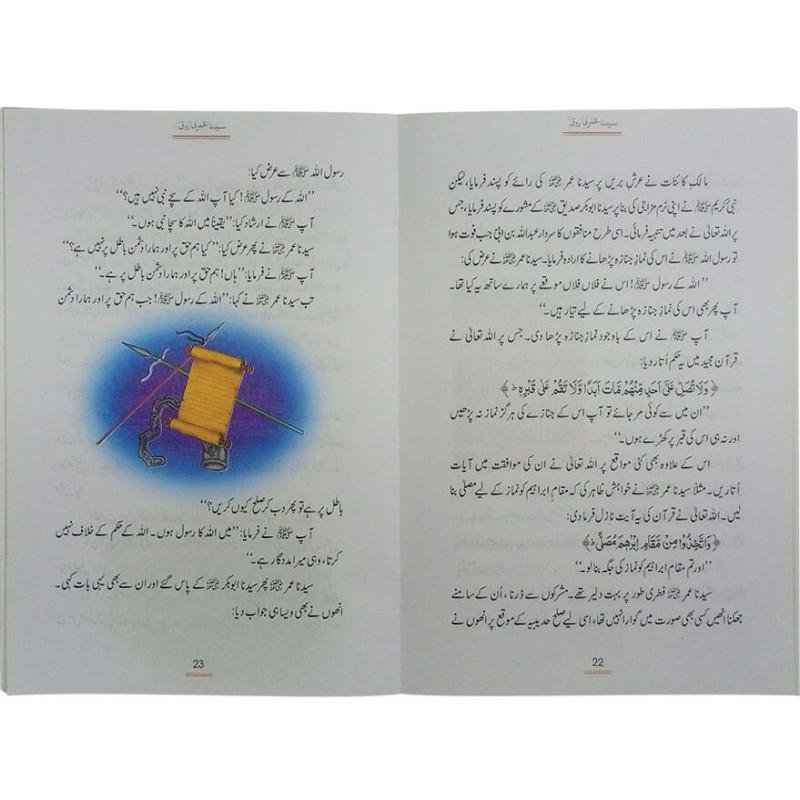 سیدنا عمر فاروق
مالک کائنات نے عرش بریں پر سیدنا عمر رضی اللہ عنہ کی رائے کو پسند فرمایا، لیکن
نبی کریم ﷺ نے اپنی نرم مزاجی کی بنا پر سیدنا ابوبکر صدیق رضی اللہ عنہ کے مشورے کو پسند فرمایا، جس
پر اللہ تعالیٰ نے بعد میں تنبیہ فرمائی۔ اسی طرح منافقوں کا سردار عبداللہ بن اُبی جب فوت ہوا
تو رسول اللہ ﷺ نے اس کی نماز جنازہ پڑھانے کا ارادہ فرمایا۔ سیدنا عمر رضی اللہ عنہ نے عرض کی:
’’اللہ کے رسول ﷺ! اس نے فلاں فلاں موقعے پر ہمارے ساتھ یہ کیا تھا۔
آپ پھر بھی اس کی نماز جنازہ پڑھانے کے لیے تیار ہیں۔‘‘
آپ ﷺ نے اس کے باوجود نماز جنازہ پڑھا دی۔ جس پر اللہ تعالیٰ نے
قرآن مجید میں یہ حکم اُتار دیا:
﴿وَلَا تُصَلِّ عَلٰٓی اَحَدٍ مِّنْهُمْ مَّاتَ اَبَدًا وَّلَا تَقُمْ عَلٰی قَبْرِهٖ ؕ﴾
’’ان میں سے کوئی مر جائے تو آپ اس کے جنازے کی ہرگز نماز نہ پڑھیں
اور نہ ہی اس کی قبر پر کھڑے ہوں۔‘‘
اس کے علاوہ بھی کئی مواقع پر اللہ تعالیٰ نے ان کی موافقت میں آیات
اُتاریں۔ مثلاً سیدنا عمر رضی اللہ عنہ نے خواہش ظاہر کی کہ مقام ابراہیم کو نماز کے لیے مصلیٰ بنا
لیں۔ اللہ تعالیٰ نے قرآن کی یہ آیت نازل فرما دی:
﴿وَاتَّخِذُوْا مِنْ مَّقَامِ اِبْرٰهٖمَ مُصَلًّی ؕ﴾
’’اور تم مقام ابراہیم کو نماز کی جگہ بنا لو۔‘‘
سیدنا عمر رضی اللہ عنہ فطری طور پر بہت دلیر تھے۔ مشرکوں سے ڈرنا، اُن کے سامنے
جھکنا انھیں کسی بھی صورت میں گوارا نہیں تھا، اسی لیے صلح حدیبیہ کے موقع پر انھوں نے
22
سیدنا عمر فاروق
رسول اللہ ﷺ سے عرض کیا:
’’اللہ کے رسول ﷺ! کیا آپ اللہ کے سچے نبی نہیں ہیں؟‘‘
آپ ﷺ نے ارشاد کیا: ’’یقیناً میں اللہ کا سچا نبی ہوں۔‘‘
سیدنا عمر رضی اللہ عنہ نے پھر عرض کیا: ’’کیا ہم حق پر اور ہمارا دشمن باطل پر نہیں ہے؟‘‘
آپ ﷺ نے فرمایا: ’’ہاں! ہم حق پر اور ہمارا دشمن باطل پر ہے۔‘‘
تب سیدنا عمر رضی اللہ عنہ نے کہا: ’’اللہ کے رسول ﷺ! جب ہم حق پر اور ہمارا دشمن
باطل پر ہے تو پھر دب کر صلح کیوں کریں؟‘‘
آپ ﷺ نے فرمایا: ’’میں اللہ کا رسول ہوں۔ اللہ کے حکم کے خلاف نہیں
کرتا، وہی میرا مددگار ہے۔‘‘
سیدنا عمر رضی اللہ عنہ پھر سیدنا ابوبکر رضی اللہ عنہ کے پاس گئے اور ان سے بھی یہی بات کہی۔
انھوں نے بھی ویسا ہی جواب دیا:
23